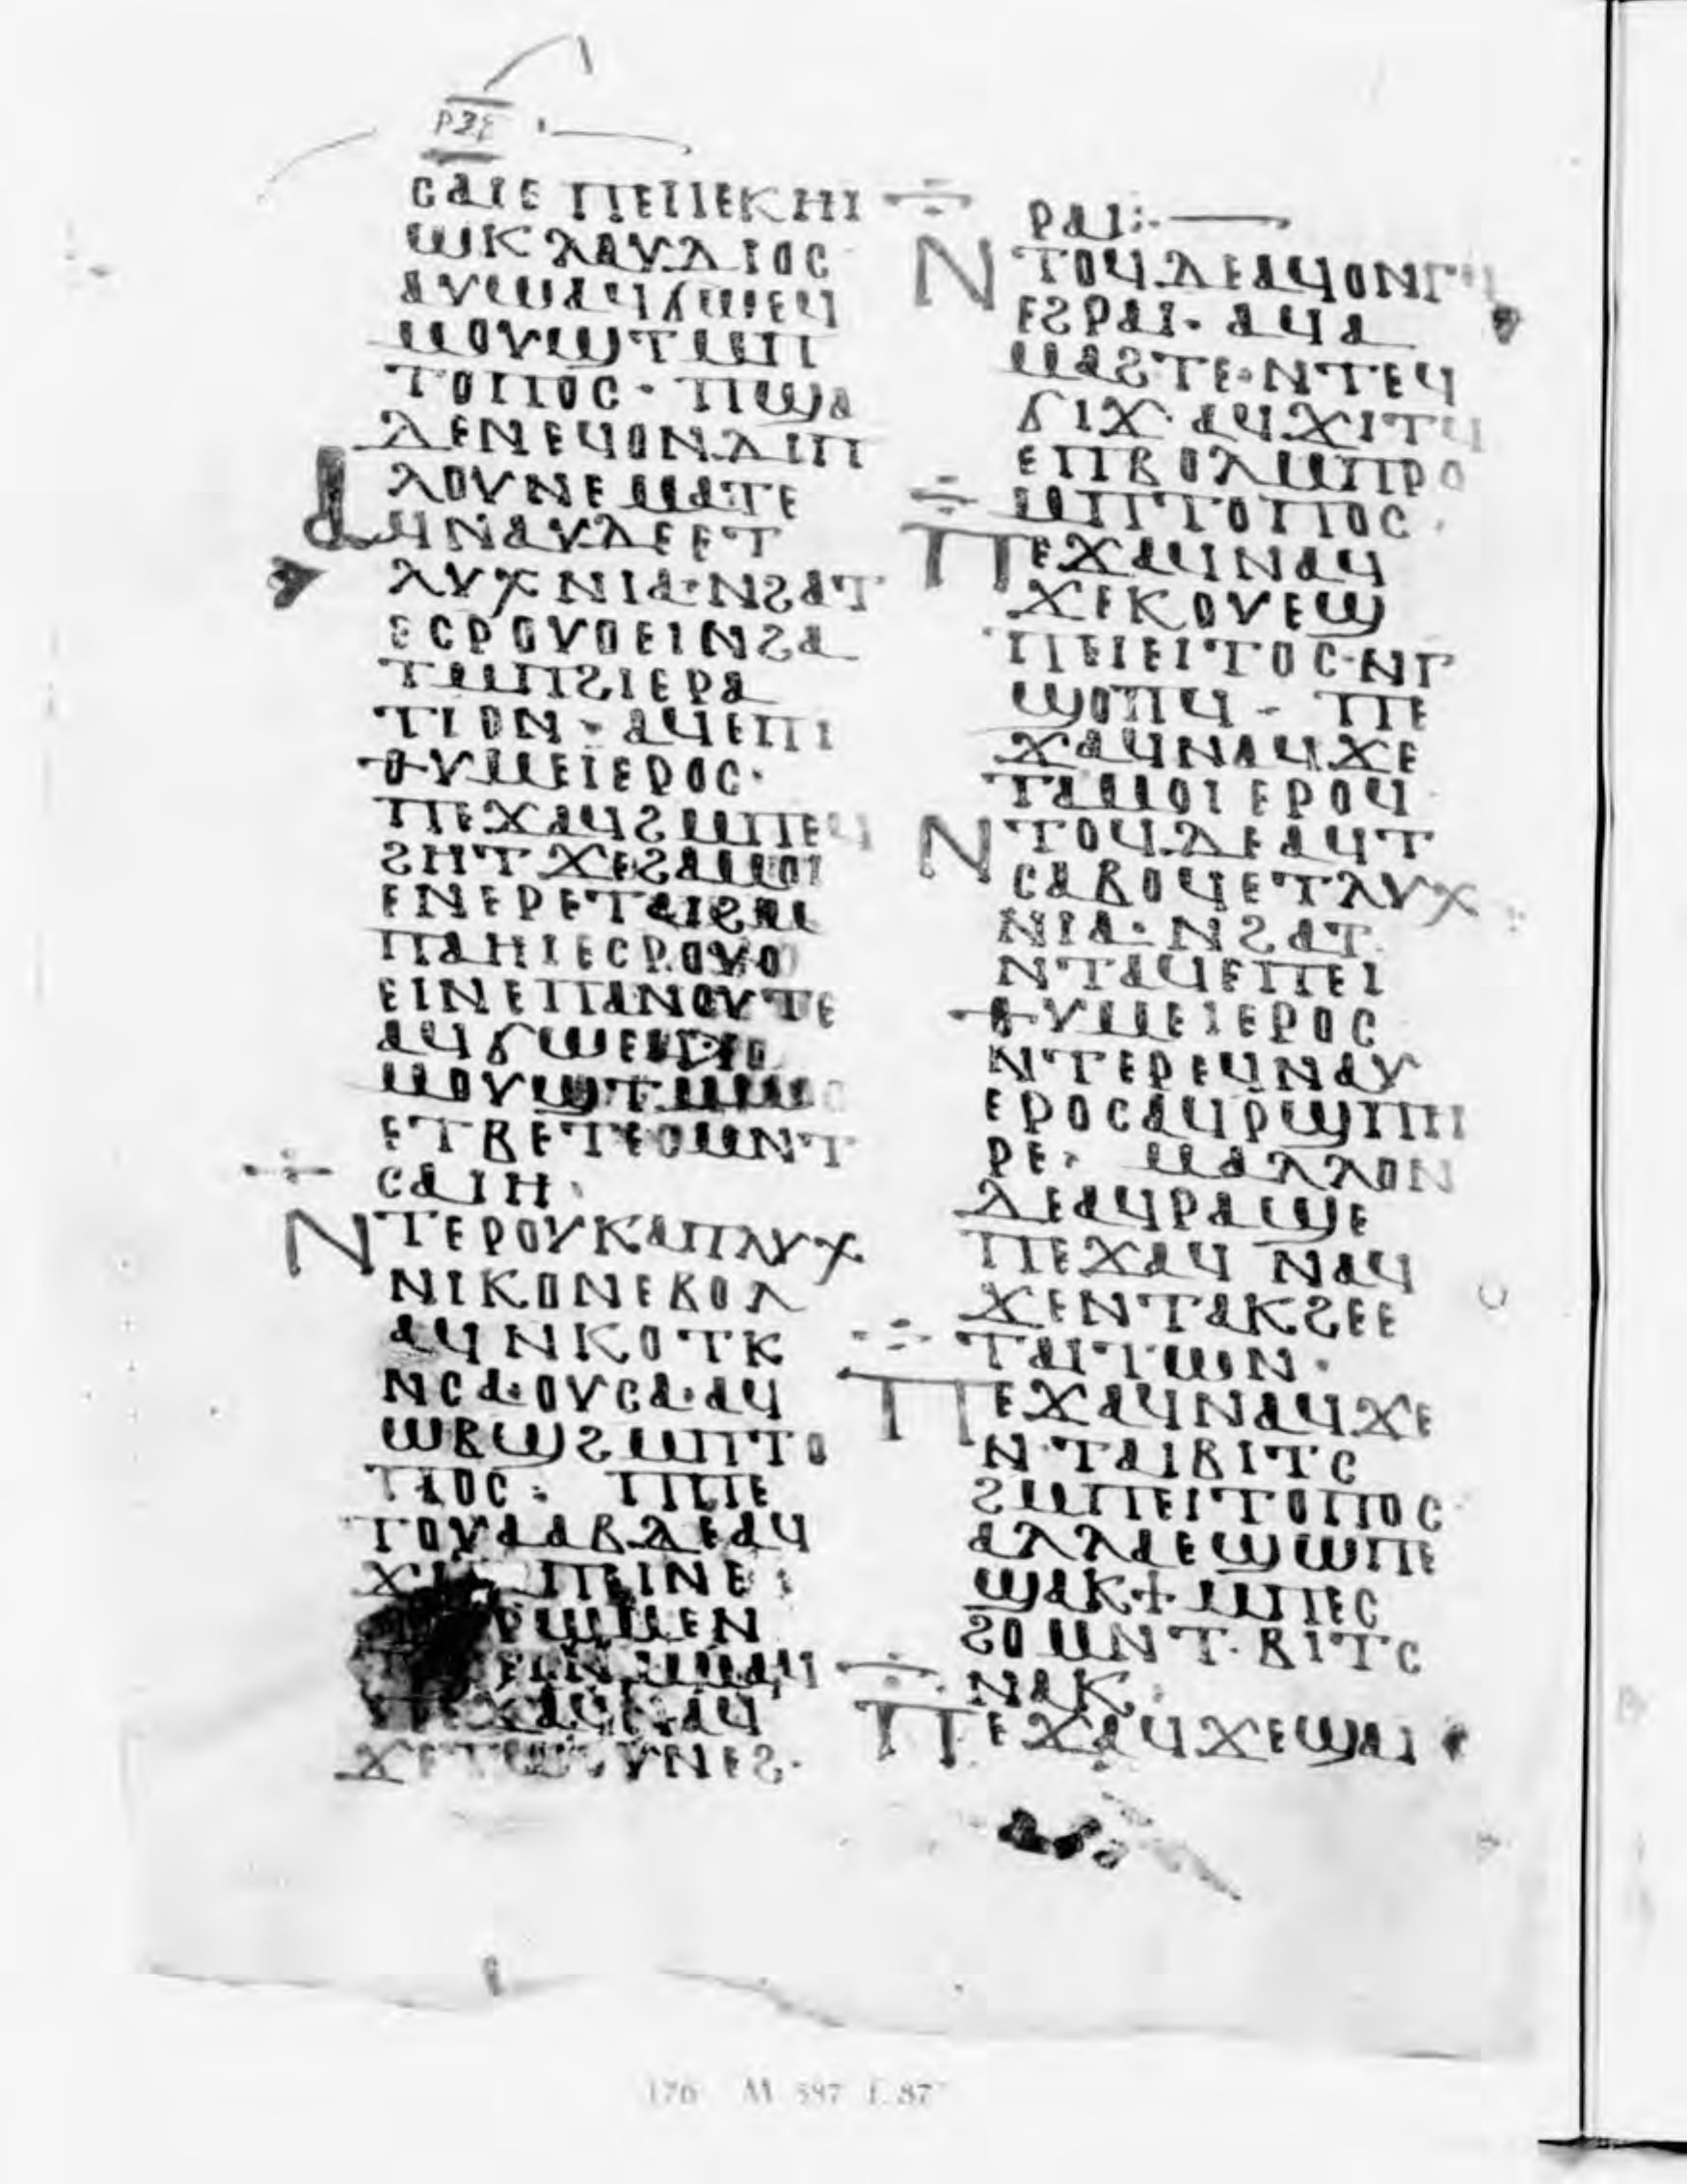 ⲣⲝⲉ
ⲥⲁⲓⲉ ⲡⲉⲓⲉⲕⲏⲓ
ⲱⲕⲗⲁⲩⲇⲓⲟⲥ
ⲁⲩⲱⲁϥϭⲱⲉϥ
ⲙⲟⲩϣⲧⲙⲡ
ⲧⲟⲡⲟⲥ· ⲡϣⲁ
ⲇⲉⲛⲉϥⲟⲛⲇⲙⲡ
ⲗⲟⲩⲛⲉⲙⲁⲧⲉ
ⲁϥⲛⲁⲩⲇⲉⲉⲧ
ⲗⲩⲭⲛⲓⲁ·ⲛϩⲁⲧ
ⲉⲥⲣⲟⲩⲟⲉⲓⲛϩⲁ
ⲧⲙⲡϩⲓⲉⲣⲁ
ⲧⲓⲟⲛ· ⲁϥⲉⲡⲓ
ⲑⲩⲙⲉⲓⲉⲣⲟⲥ·
ⲡⲉϫⲁϥϩⲙⲡⲉϥ
ϩⲏⲧ ϫⲉϩⲁⲙⲟⲓ
ⲉⲛⲉⲣⲉⲧⲁⲓϩⲙ
ⲡⲁⲏⲓⲉⲥⲣⲟⲩⲟ
ⲉⲓⲛⲉⲡⲁⲛⲟⲩⲧⲉ
ⲁϥϭⲱ
ⲙⲟⲩϣⲧⲙⲙⲟⲥ
ⲉⲧⲃⲉⲧⲉⲥⲙⲛⲧ
ⲥⲁⲓⲏ·
ⲛⲧⲉⲣⲟⲩⲕⲁⲡⲗⲩⲭ
ⲛⲓⲕⲟⲛⲉⲃⲟⲗ
ⲁϥⲛⲕⲟⲧⲕ
ⲛⲥⲁ·ⲟⲩⲥⲁ·ⲁϥ
ⲱⲃϣϩⲙⲡⲧⲟ
ⲡⲟⲥ: ⲡⲡⲉ
ⲧⲟⲩⲁⲁⲃⲇⲉⲁϥ
ϫⲓ ⲙⲡⲉⲓⲛⲉ:
ⲣⲱⲙⲉⲛ
ⲙⲙⲁϥ
ⲡⲉϫⲁϥⲛⲁϥ
ϫⲉⲧⲱⲟⲩⲛⲉϩ·
ⲣⲁⲓ:—
ⲛⲧⲟϥⲇⲉⲁϥⲟⲛⲅϥ
ⲉϩⲣⲁⲓ· ⲁϥⲁ
ⲙⲁϩⲧⲉ·ⲛⲧⲉϥ
ϭⲓϫ·ⲁϥϫⲓⲧϥ
ⲉⲡⲃⲟⲗⲙⲡⲣⲟ
ⲙⲡⲧⲟⲡⲟⲥ·
ⲡⲉϫⲁϥⲛⲁϥ
ϫⲉⲕⲟⲩⲉϣ
ⲡⲉⲓⲉⲓⲧⲟⲥ·ⲛⲅ
ϣⲟⲡϥ· ⲡⲉ
ϫⲁϥⲛⲁϥϫⲉ
ⲧⲁⲙⲟⲓ ⲉⲣⲟϥ
ⲛⲧⲟϥⲇⲉⲁϥⲧ
ⲥⲁⲃⲟϥⲉⲧⲗⲩⲭ
ⲛⲓⲁ·ⲛϩⲁⲧ
ⲛⲧⲁϥⲉⲡⲉⲓ
ⲑⲩⲙⲉⲓⲉⲣⲟⲥ
ⲛⲧⲉⲣⲉϥⲛⲁⲩ
ⲉⲣⲟⲥⲁϥⲣϣⲡⲏ
ⲣⲉ· ⲙⲁⲗⲗⲟⲛ
ⲇⲉⲁϥⲣⲁϣⲉ
ⲡⲉϫⲁϥ ⲛⲁϥ
ϫⲉⲛⲧⲁⲕϩⲉⲉ
ⲧⲁⲓⲧⲱⲛ·
ⲡⲉϫⲁϥⲛⲁϥϫⲉ
ⲛⲧⲁⲓϥⲓⲧⲥ
ϩⲙⲡⲉⲓⲧⲟⲡⲟⲥ
ⲁⲗⲗⲁⲉϣⲱⲡⲉ
ϣⲁⲕϯⲙⲡⲉⲥ
ϩⲟⲙⲛⲧ·ⲃⲓⲧⲥ
ⲛⲁⲕ:
ⲡⲉϫⲁϥϫⲉϣⲁⲓ
176 M 587 f.87